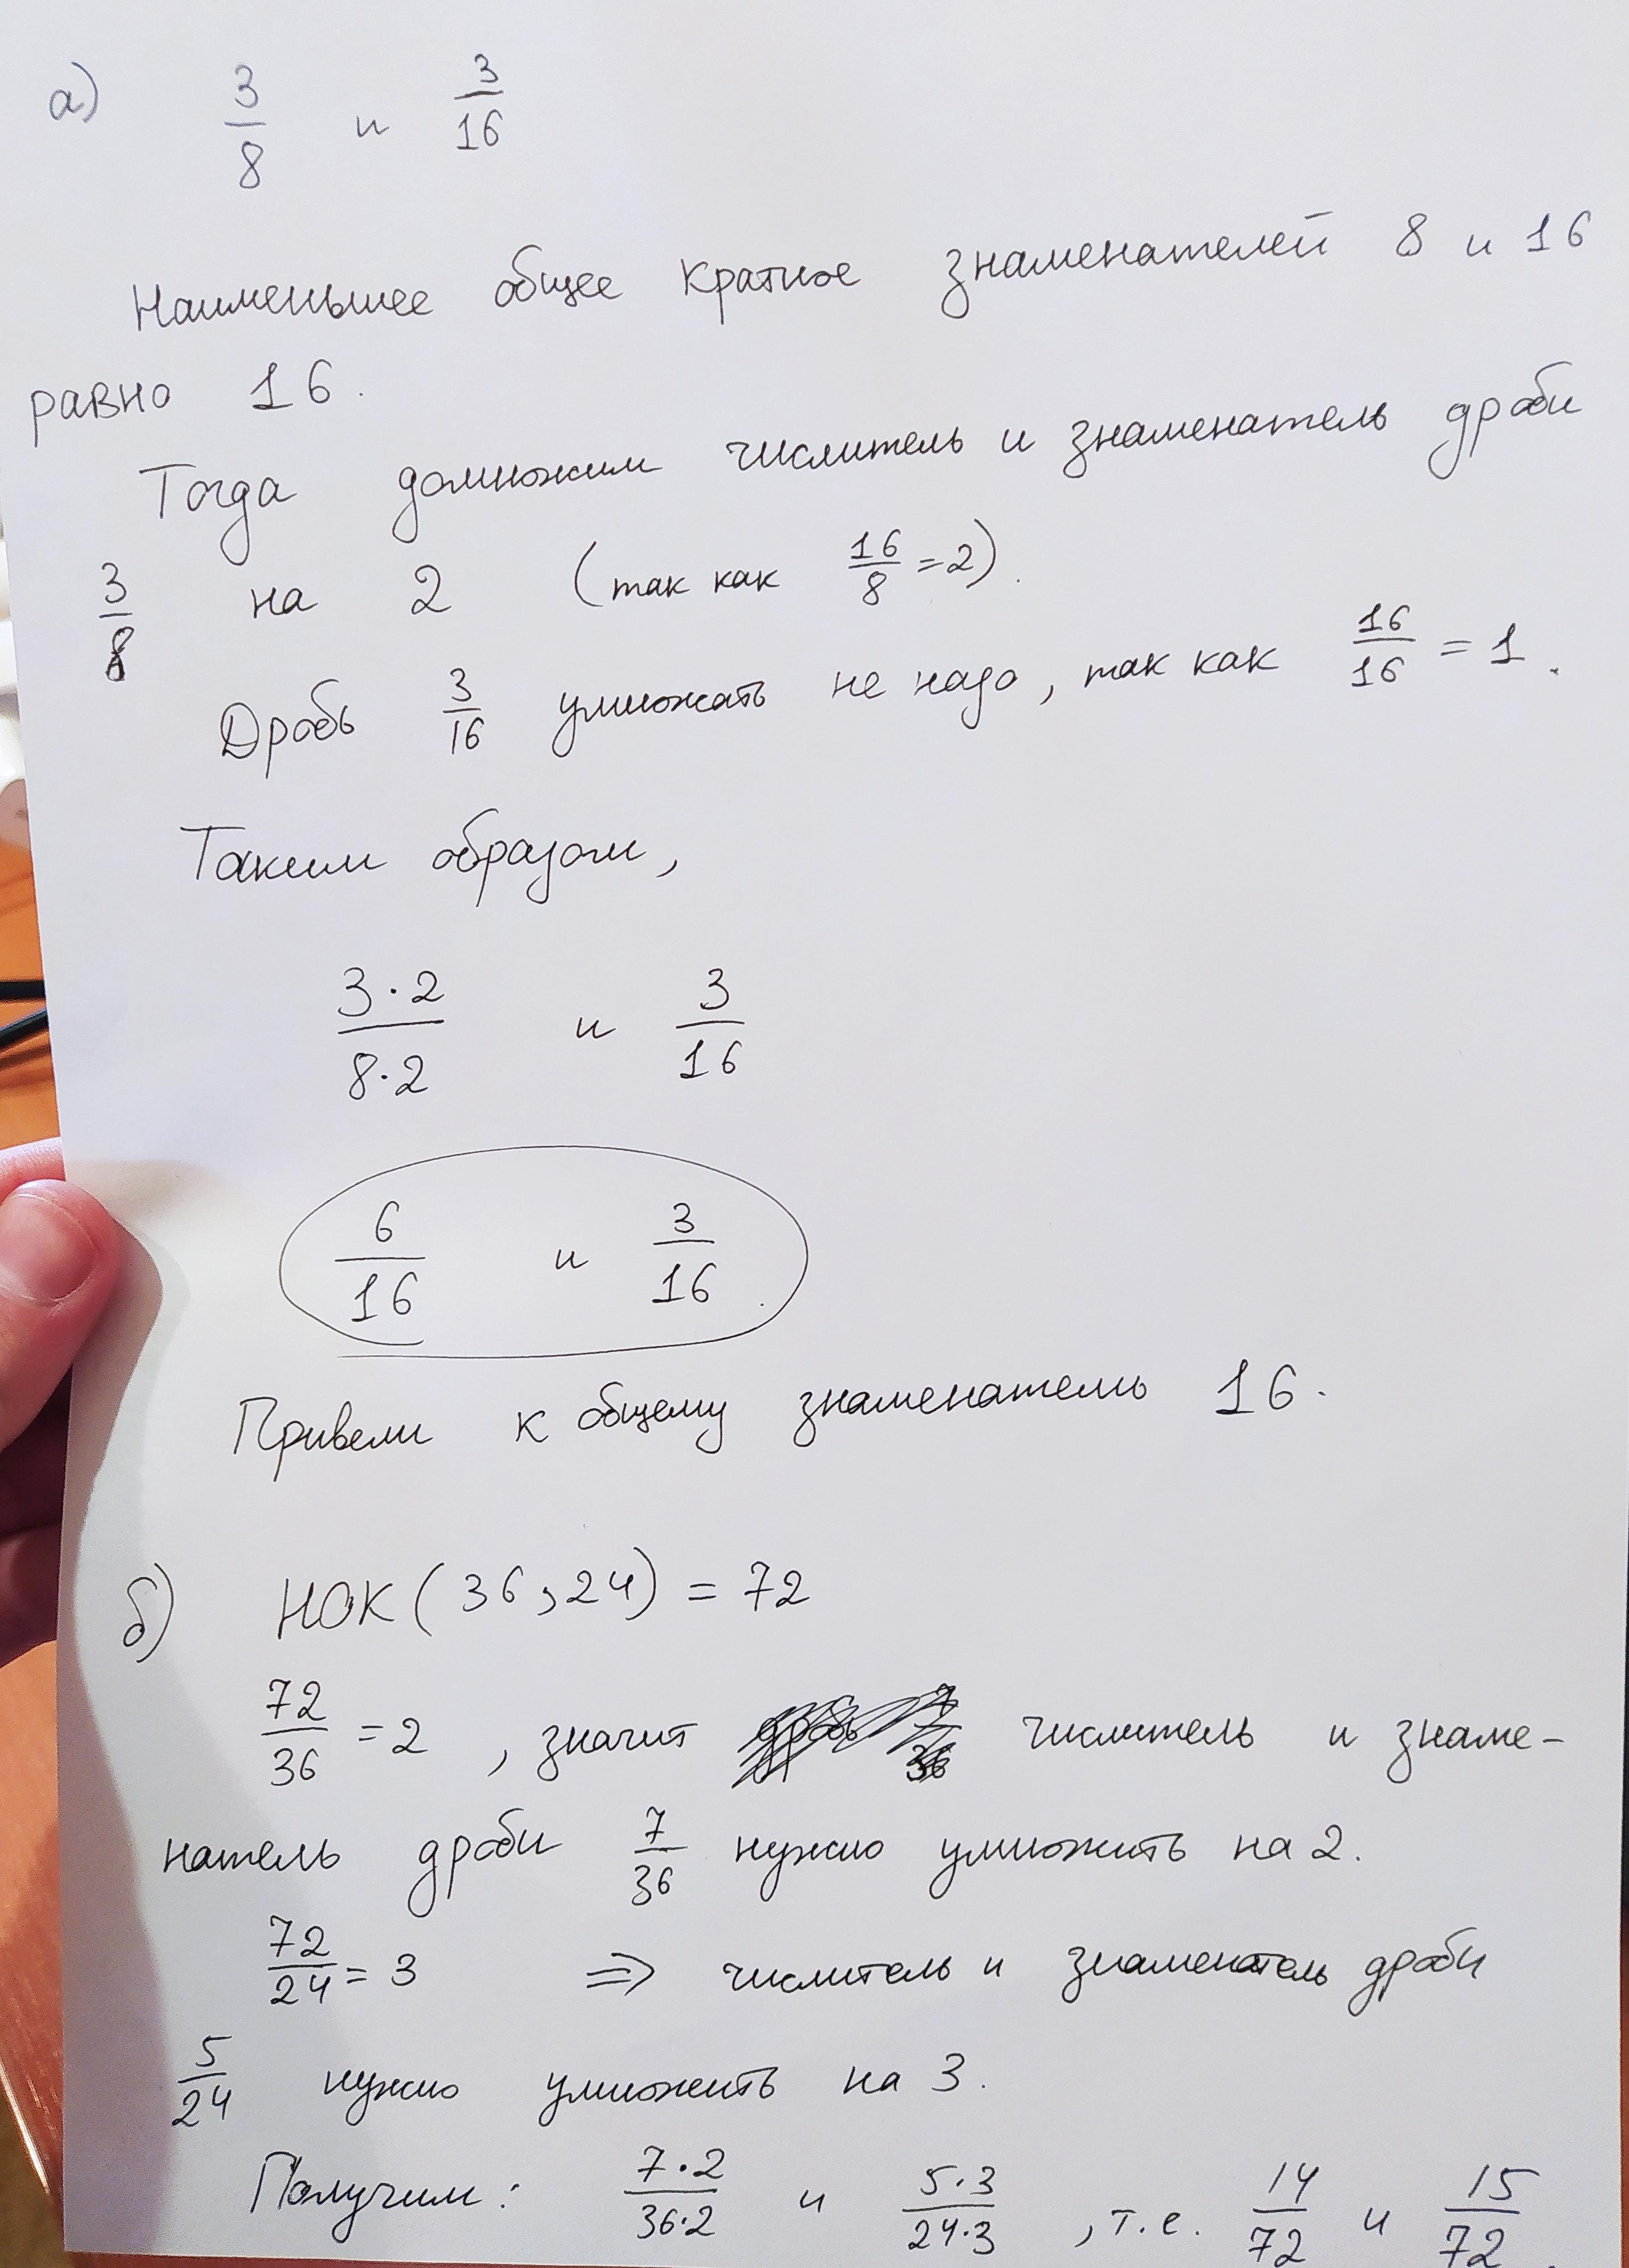 а) 3/8 и 3/16
Наименьшее общее кратное знаменателей 8 и 16
равно 16.
Тогда домножим числитель и знаменатель дроби
3/8 на 2 (так как 16/8 = 2).
Дробь 3/16 умножать не надо, так как 16/16 = 1.
Таким образом,
3·2/8·2 и 3/16
6/16 и 3/16.
Привели к общему знаменателю 16.
б) НОК(36, 24) = 72
72/36 = 2, значит числитель и знаме-
натель дроби 7/36 нужно умножить на 2.
72/24 = 3 => числитель и знаменатель дроби
5/24 нужно умножить на 3.
Получим: 7·2/36·2 и 5·3/24·3, т.е. 14/72 и 15/72.